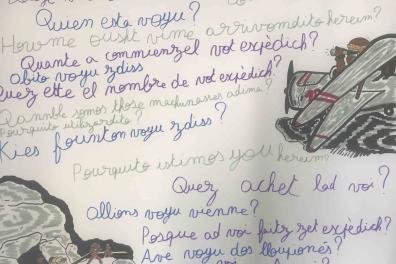 Quien esta voyu?
How me ousht vime arrivomdito hereim?
Quante a commienzel vot esxjèdich?
Abito voyu zdiss
Quez ette el nombre de vot esxjèdich?
somos those machunasses adima?
Pourquito utilizardito?
Kies founton voyu zdiss?
Pourquito istimos you hereim?
Quez achet lad voi?
Allions voyu vienne?
Posque ad voi faitz zet esxjèdich?
Ave voyu dos lloupionés?